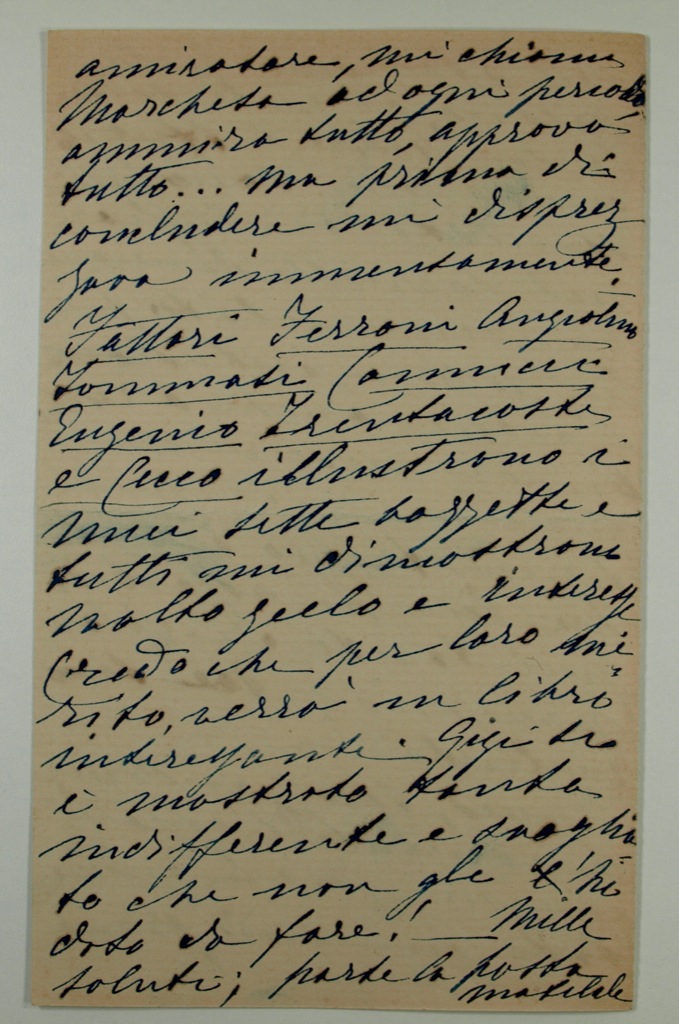 amiratore, mi chiama
Marchesa ad ogni periodo,
ammira tutto, approva
tutto... ma prima di
concludere mi disprez
zava immensamente.
Fattori Ferroni Angiolino
Tommasi Cannicci
Eugenio Trentacoste
e Cecco illustrono i
miei sette bozzetti e
tutti mi dimostrono
molto zelo e interesse
Credo che per loro me-
rito, verrà un libro
interessante. Gigi si
è mostrato tanto
indifferente e svoglia
to che non gle l'hò
dato da fare! — Mille
saluti; parte la posta
Matilde